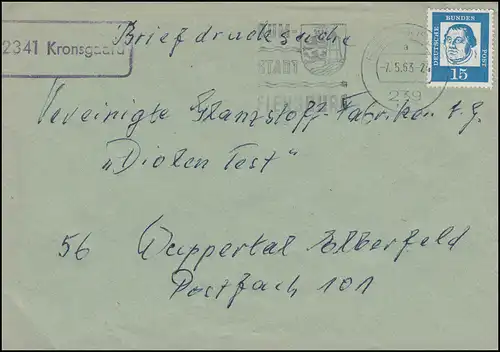 2341 Kronsgaard
Briefdrucksache
ZUM
START
FLENSBURG
-7.5.63-2
239
DEUTSCHE BUNDES POST
15
Vereinigte Glanzstoff-Fabriken A.G.
„Diolen Test“
56 Wuppertal Elberfeld
Postfach 101